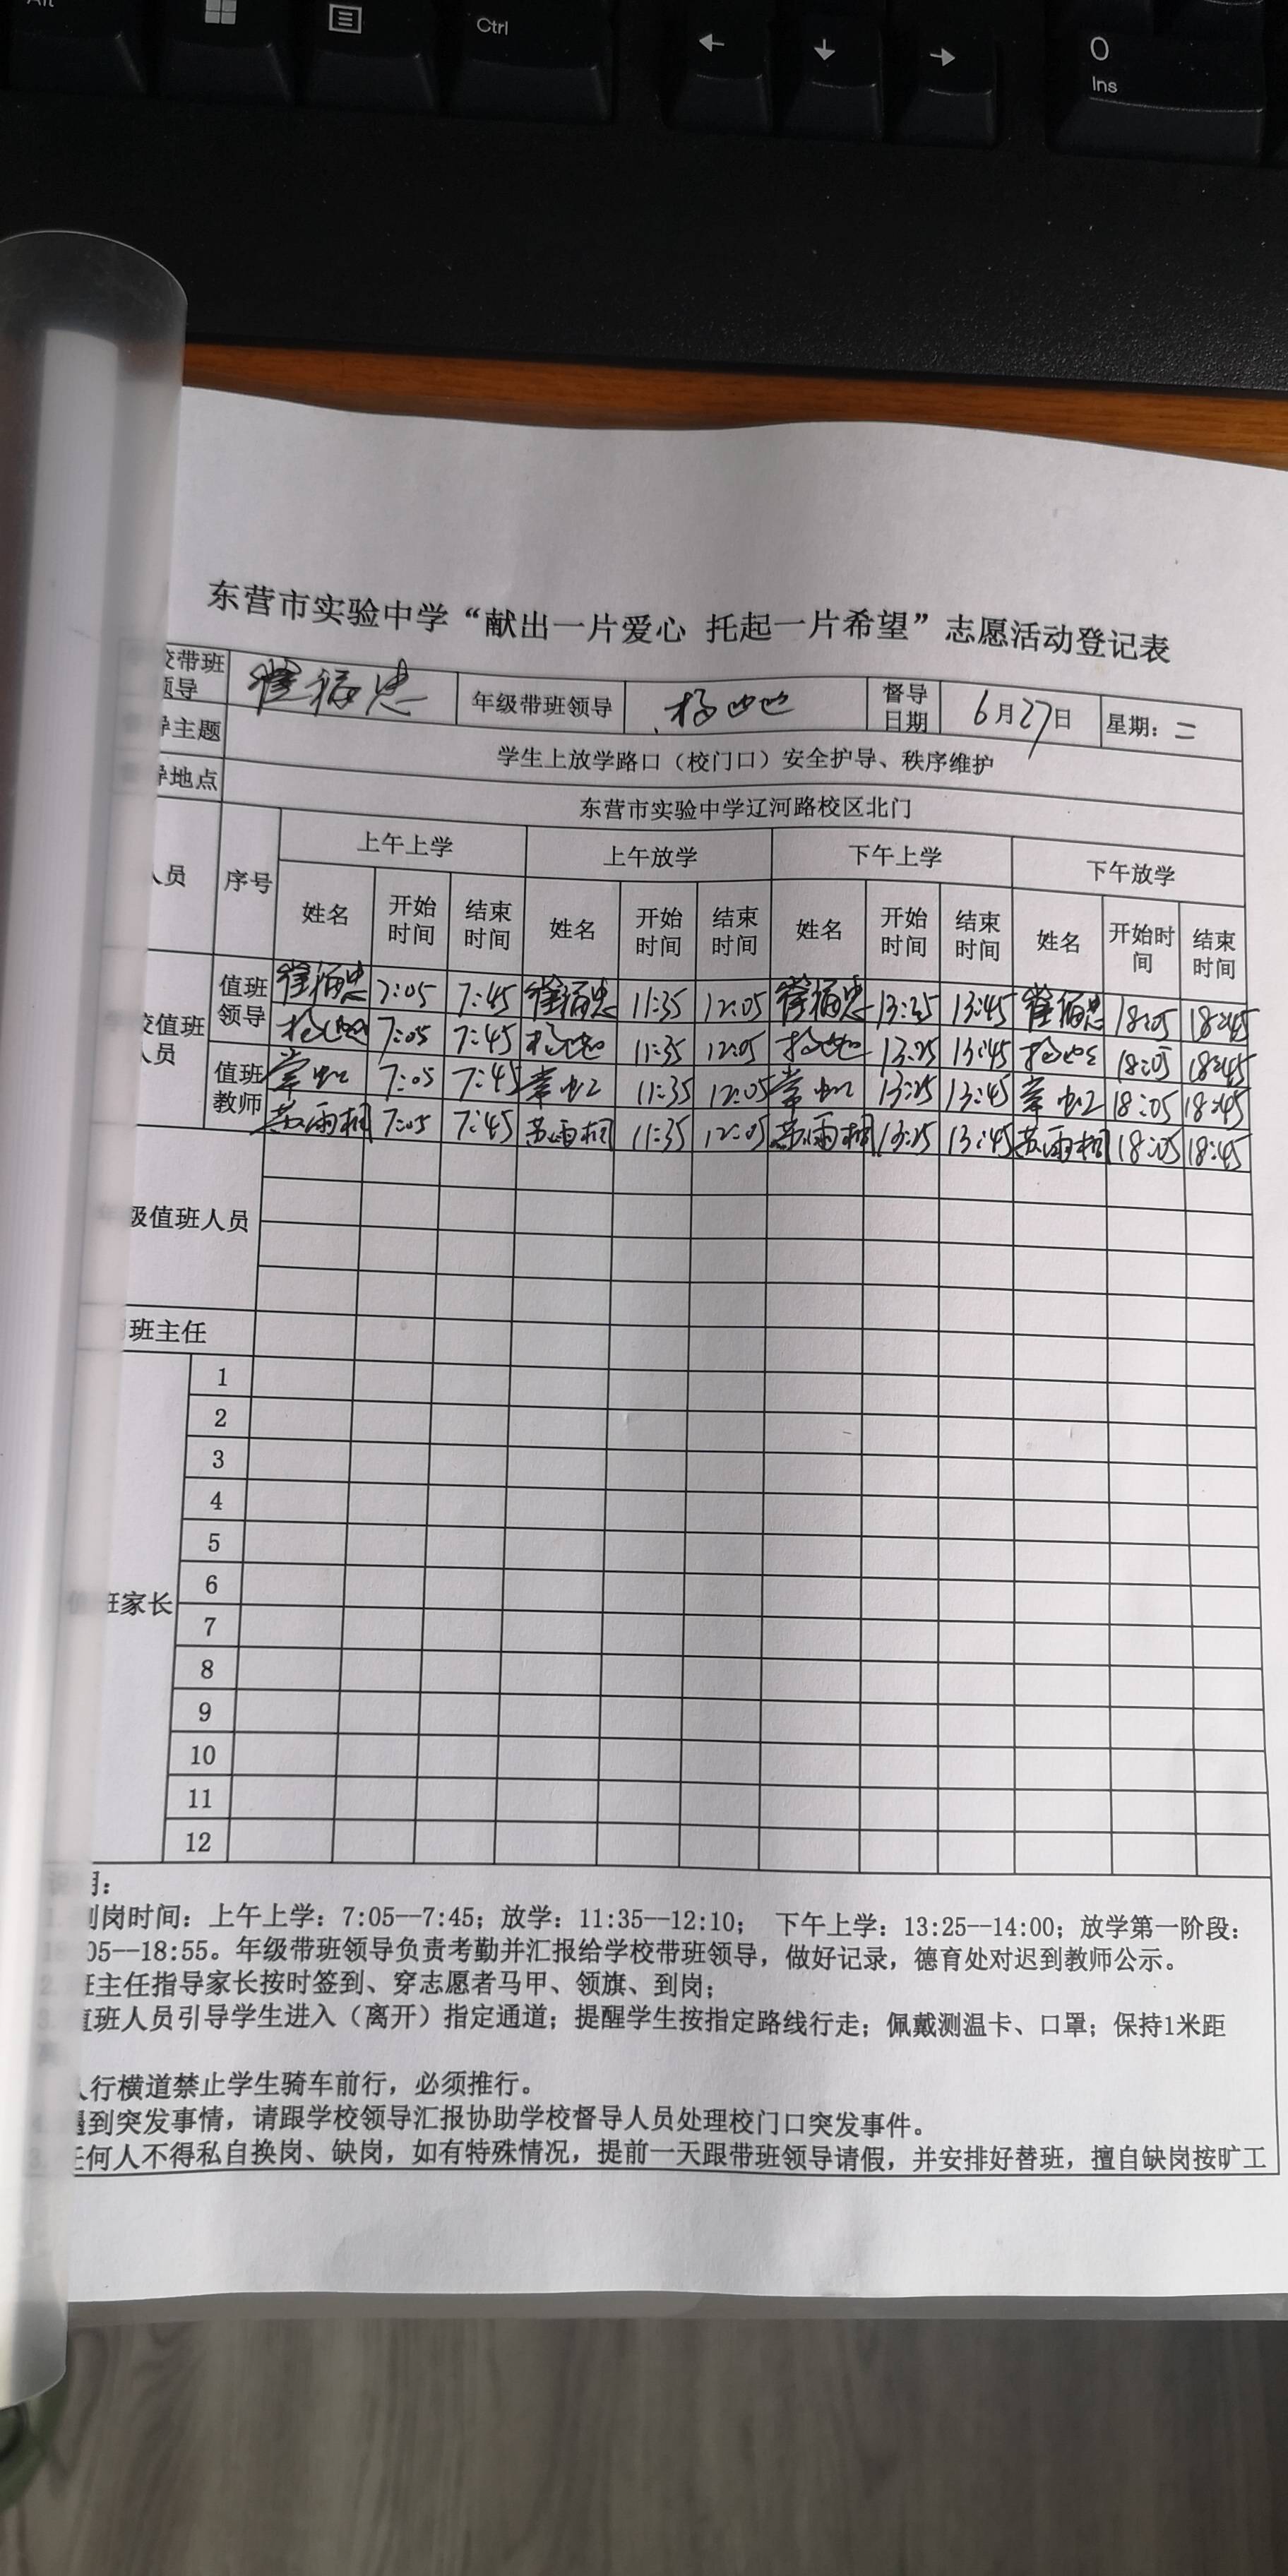 Alt
Ctrl
0
Ins
东营市实验中学“献出一片爱心 托起一片希望”志愿活动登记表
校带班领导 崔福忠 年级带班领导 督导日期 6月27日 星期：二
导主题 学生上放学路口（校门口）安全护导、秩序维护
导地点 东营市实验中学辽河路校区北门
人员 序号 上午上学 上午放学 下午上学 下午放学
姓名 开始时间 结束时间 姓名 开始时间 结束时间 姓名 开始时间 结束时间 姓名 开始时间 结束时间
校值班人员
值班领导 崔福忠 7:05 7:45 崔福忠 11:35 12:05 崔福忠 13:25 13:45 崔福忠 18:05 18:45
7:05 7:45 11:35 12:05 13:25 13:45 18:05 18:45
值班教师 常 7:05 7:45 常 11:35 12:05 常 13:25 13:45 常 18:05 18:45
苏雨桐 7:05 7:45 苏雨桐 11:35 12:05 苏雨桐 13:25 13:45 苏雨桐 18:05 18:45
级值班人员
班主任
班家长
1
2
3
4
5
6
7
8
9
10
11
12
明：
到岗时间：上午上学：7:05--7:45；放学：11:35--12:10； 下午上学：13:25--14:00；放学第一阶段：
05--18:55。年级带班领导负责考勤并汇报给学校带班领导，做好记录，德育处对迟到教师公示。
班主任指导家长按时签到、穿志愿者马甲、领旗、到岗；
值班人员引导学生进入（离开）指定通道；提醒学生按指定路线行走；佩戴测温卡、口罩；保持1米距
人行横道禁止学生骑车前行，必须推行。
遇到突发事情，请跟学校领导汇报协助学校督导人员处理校门口突发事件。
任何人不得私自换岗、缺岗，如有特殊情况，提前一天跟带班领导请假，并安排好替班，擅自缺岗按旷工